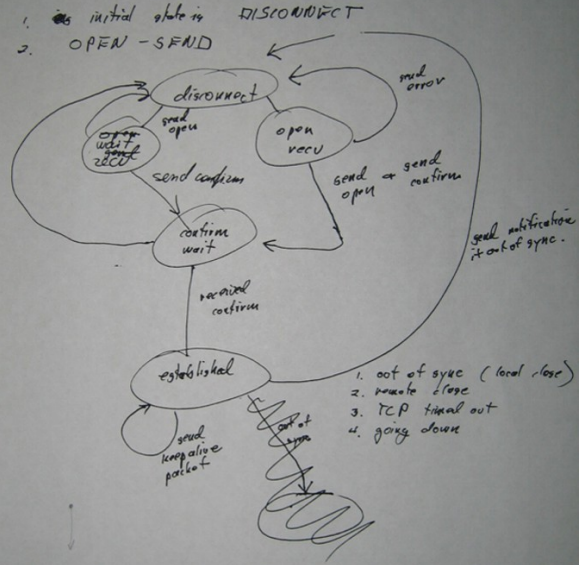 1. initial state is DISCONNECT
2. OPEN - SEND
disconnect
send
error
send
open
open
wait
recv
open
recv
send confirm
send or send
open confirm
confirm
wait
send notification
if out of sync.
received
confirm
established
1. out of sync (local close)
2. remote close
3. TCP timed out
4. going down
out of
sync
send
keepalive
packet